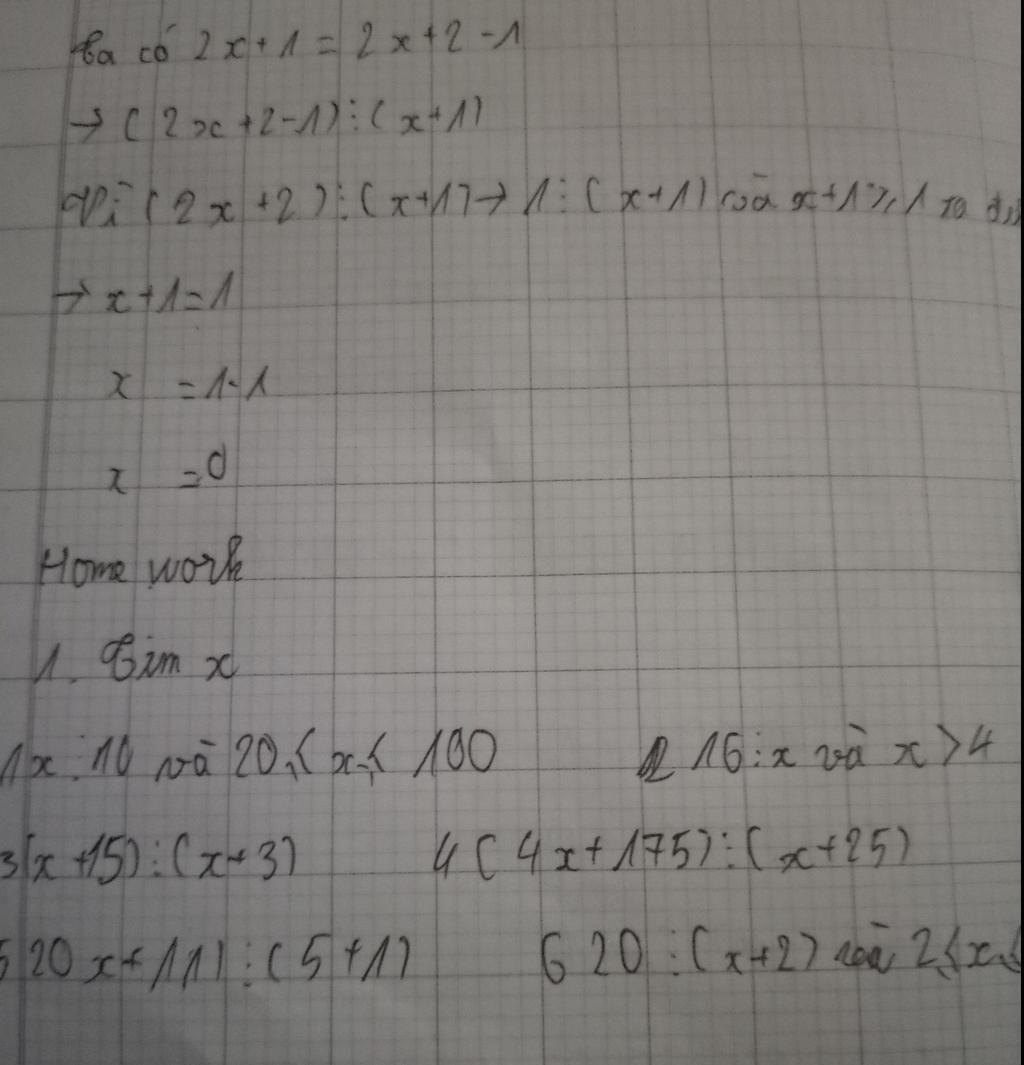 Ta có 2x+1 = 2x+2-1
→ (2x+2-1)⋮(x+1)
Vì (2x+2)⋮(x+1)→ 1⋮(x+1) và x+1⩾1
→ x+1=1
x =1-1
x =0
Home work
1. Tìm x
1 x⋮10 và 20⩽x⩽100 2 16⋮x và x>4
3(x+15)⋮(x+3) 4(4x+175)⋮(x+25)
5 20x+11)⋮(5+1) 6 20⋮(x+2) và 2⩽x⩽